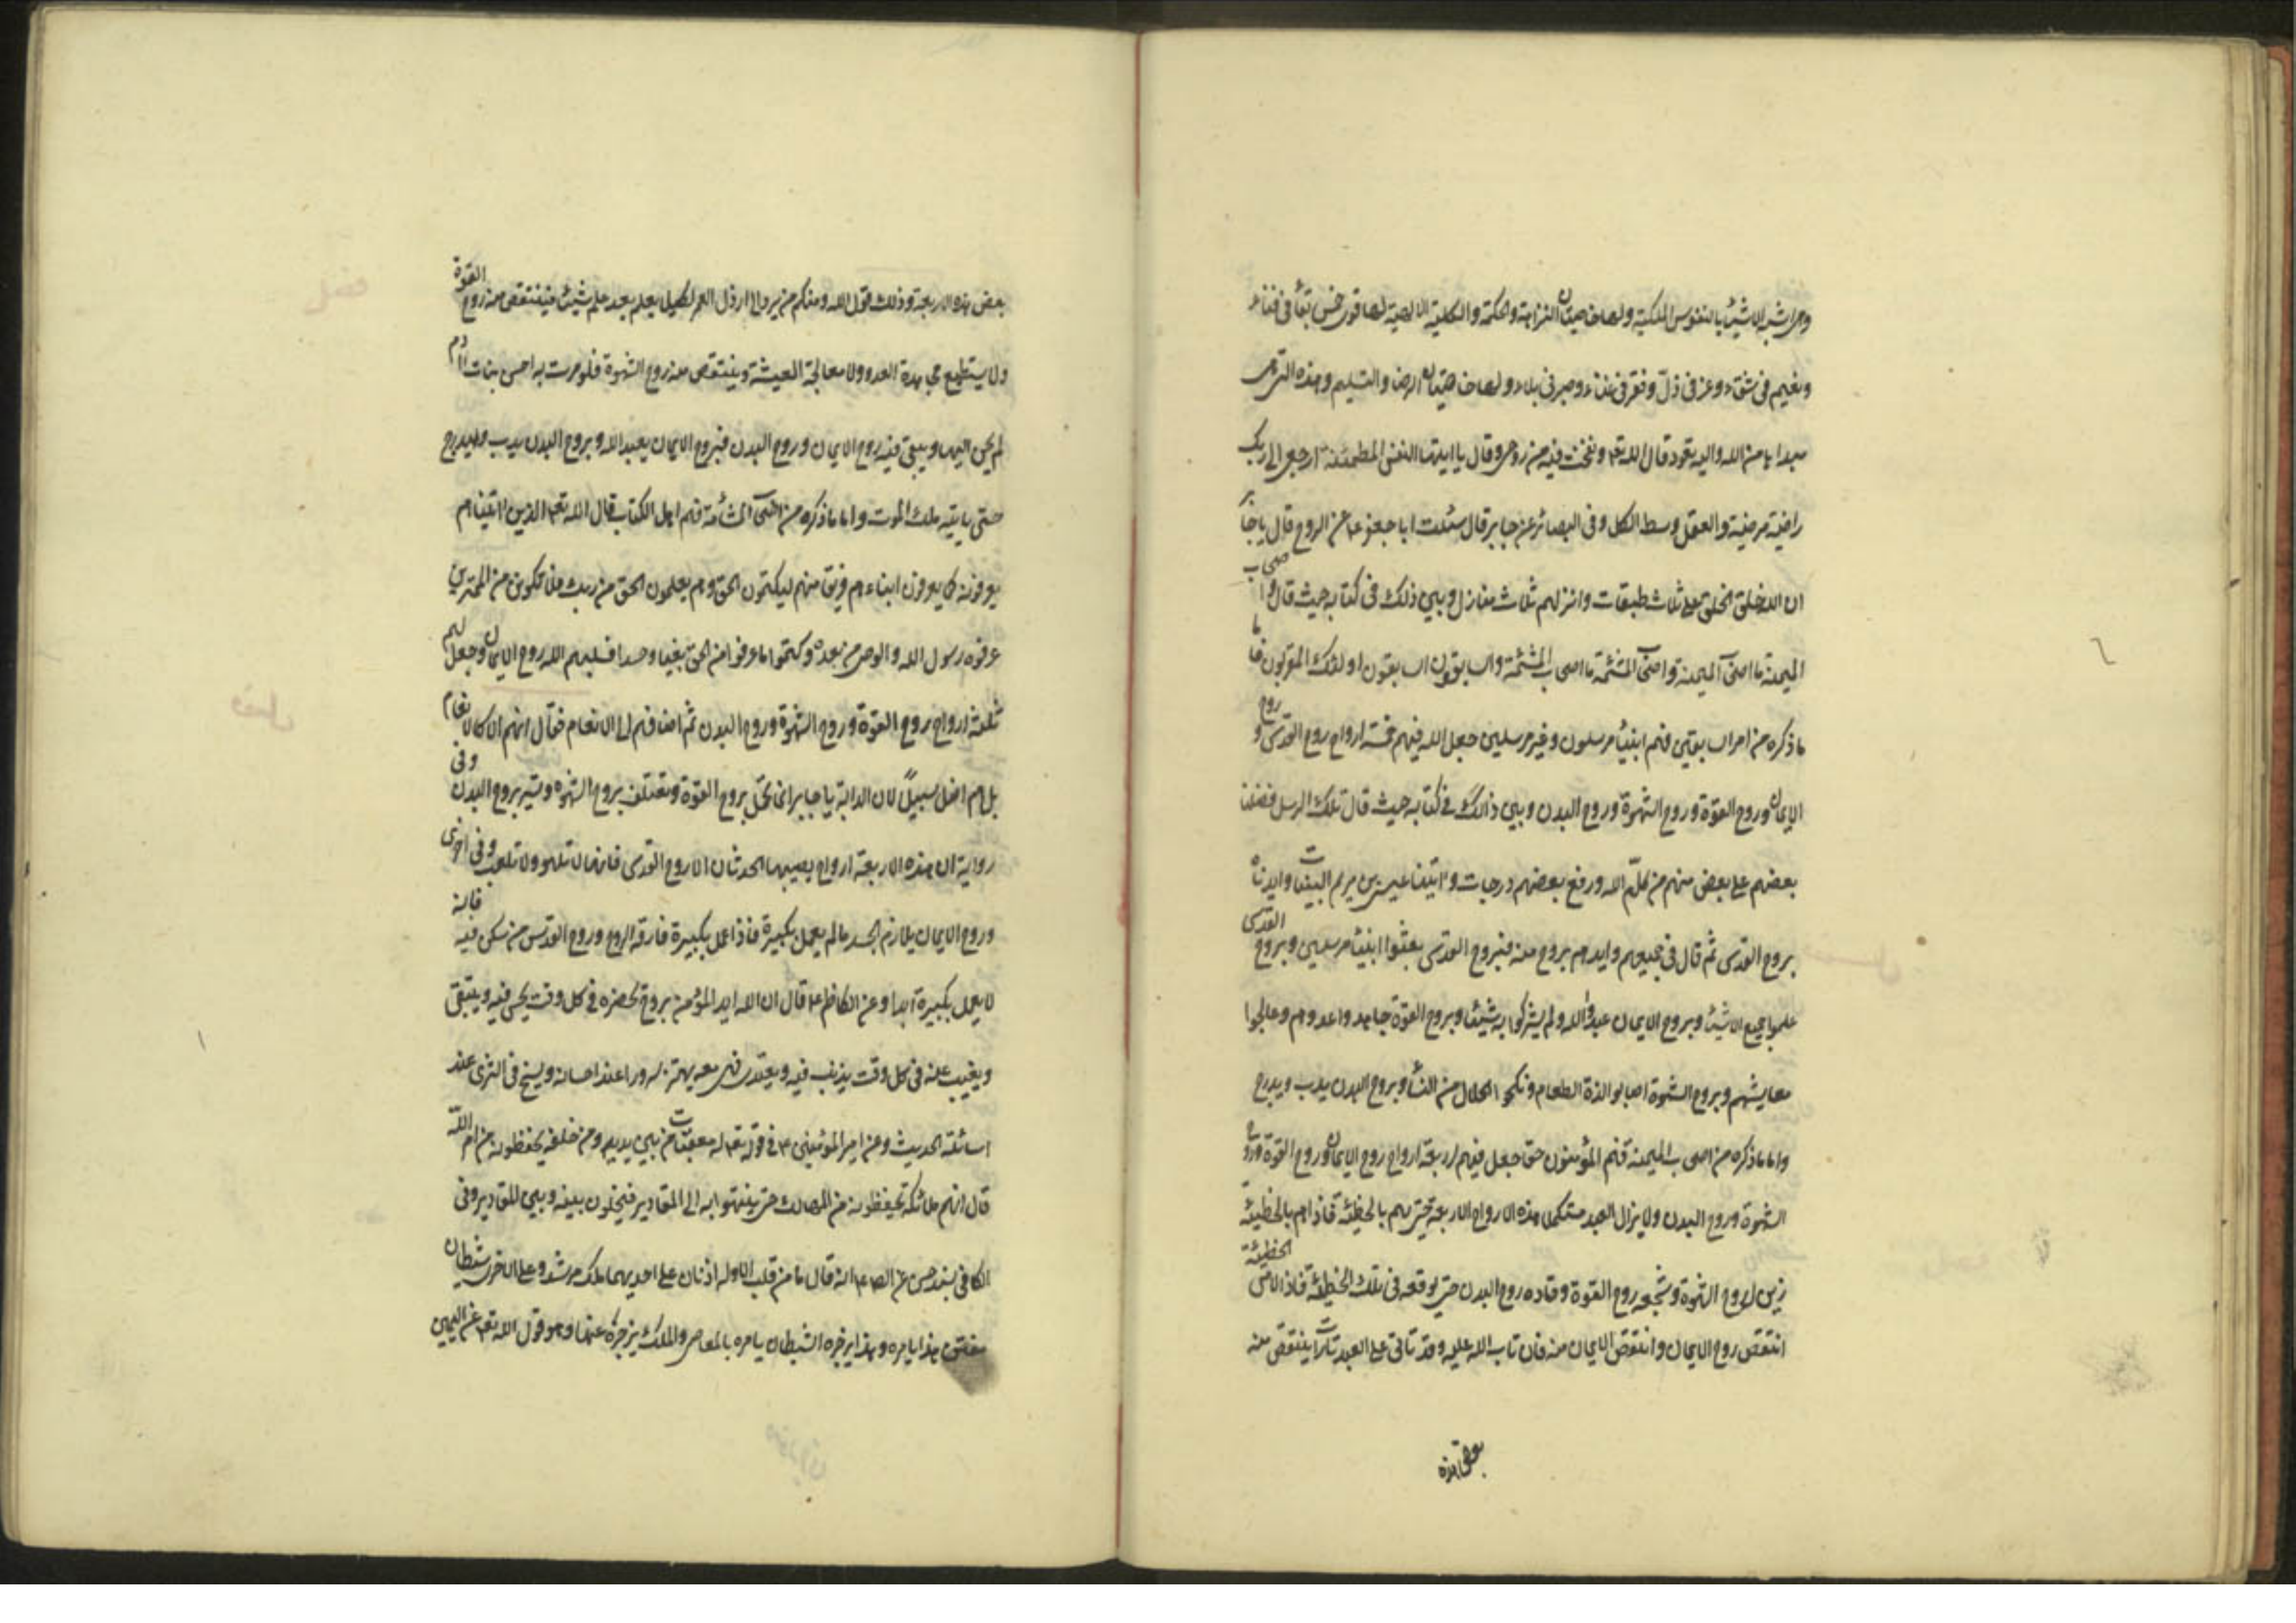 وهي اشبه الاشياء بالنفوس الملكية ولها خاصيتان النزاهة والحكمة والكلية الالهية لها قوى خمس بقاء في فناء
ونعيم في شقاء وعز في ذل وفقر في غناء وصبر في بلاء ولها خاصيتان الرضا والتسليم وهذه التي
مبداها من الله واليه تعود قال الله تعه ونفخت فيه من روحي وقال يا ايتها النفس المطمئنة ارجعي الى ربك
راضية مرضية والعقل وسط الكل وفي البصائر عن جابر قال سئلت ابا جعفر ع عن الروح قال يا جابر
ان الله خلق الخلق على ثلاث طبقات وانزلهم ثلاث منازل وبين ذلك في كتابه حيث قال واصحاب
الميمنة ما اصحاب الميمنة واصحاب المشئمة ما اصحاب المشئمة والسابقون السابقون اولئك المقربون فاما
ما ذكره من امر السابقين فهم انبياء مرسلون وغير مرسلين جعل الله فيهم خمسة ارواح روح القدس وروح
الايمان وروح القوة وروح الشهوة وروح البدن وبين ذالك في كتابه حيث قال تلك الرسل فضلنا
بعضهم على بعض منهم من كلّم الله ورفع بعضهم درجات واتينا عيسى بن مريم البينات وايدناه
بروح القدس ثم قال في جميعهم وايدهم بروح منه فبروح القدس بعثوا انبياء مرسلين وبروح القدس
علموا جميع الاشياء وبروح الايمان عبدوا الله ولم يشركوا به شيئا وبروح القوة جاهدوا عدوهم وعالجوا
معايشهم وبروح الشهوة اصابوا لذة الطعام ونكحوا الحلال من النساء وبروح البدن يدب ويدرج
واما ما ذكره من اصحاب الميمنة فهم المؤمنون حقا جعل فيهم اربعة ارواح روح الايمان وروح القوة وروح
الشهوة وروح البدن ولا يزال العبد مستكمل هذه الارواح الاربعة حتى يهم بالخطيئة فاذا هم بالخطيئة
زين له روح الشهوة وشجعه روح القوة وقاده روح البدن حتى يوقعه في تلك الخطيئة فاذا لامس الخطيئة
انتقص روح الايمان وانتقص الايمان منه فان تاب تاب الله عليه وقد تاتي على العبد تارات ينتقص منه
بعض هذه
بعض هذه الاربعة وذلك قول الله ومنكم من يرد الى ارذل العمر لكيلا يعلم بعد علم شيئا فينتقص منه روح القوة
ولا يستطيع مجاهدة العدو ولا معالجة المعيشة وينتقص منه روح الشهوة فلو مرت به احسن بنات ادم
لم يحن اليها ويبقى فيه روح الايمان وروح البدن فبروح الايمان يعبد الله وبروح البدن يدب ويدرج
حتى ياتيه ملك الموت واما ما ذكره من اصحاب المشأمة فهم اهل الكتاب قال الله تعه الذين اتيناهم
يعرفونه كما يعرفون ابناءهم وفريقا منهم ليكتمون الحق وهم يعلمون الحق من ربك فلا تكونن من الممترين
عرفوه رسول الله والوصي من بعده وكتموا ما عرفوا من الحق بغيا وحسدا فسلبهم الله روح الايمان وجعل لهم
ثلثة ارواح روح القوة وروح الشهوة وروح البدن ثم اضافهم الى الانعام فقال ان هم الا كالانعام
بل هم اضل سبيلاً لان الدابة يا جابر انما تحمل بروح القوة وتعتلف بروح الشهوة وتسير بروح البدن وفي
رواية ان هذه الاربعة ارواح يصيبها الحدثان الا روح القدس فانها لا تلهو ولا تلعب وفي اخرى
وروح الايمان يلازم الجسد ما لم يعمل بكبيرة فاذا عمل بكبيرة فارقه الروح وروح القدس من سكن فيه فانه
لا يعمل بكبيرة ابدا وعن الكاظم ع قال ان الله ايد المؤمن بروح تحضره في كل وقت يحسن فيه ويتقي
ويغيب عنه في كل وقت يذنب فيه ويعتدي فهي معه تهتز سرورا عند احسانه وتسيخ في الثرى عند
اسائته الحديث وعن امير المؤمنين ع في قوله تعه له معقبات من بين يديه ومن خلفه يحفظونه من امر اللّه
قال انهم ملائكة يحفظونه من المهالك حتى ينتهوا به الى المقادير فيخلون بينه وبين المقادير وفي
الكافي بسند حسن عن الص ع انه قال ما من قلب الا وله اذنان على احديهما ملك مرشد وعلى الاخرى شيطان
مفتن هذا يامره وهذا يزجره الشيطان يامره بالمعاصي والملك يزجره عنها وهو قول الله تعه عن اليمين